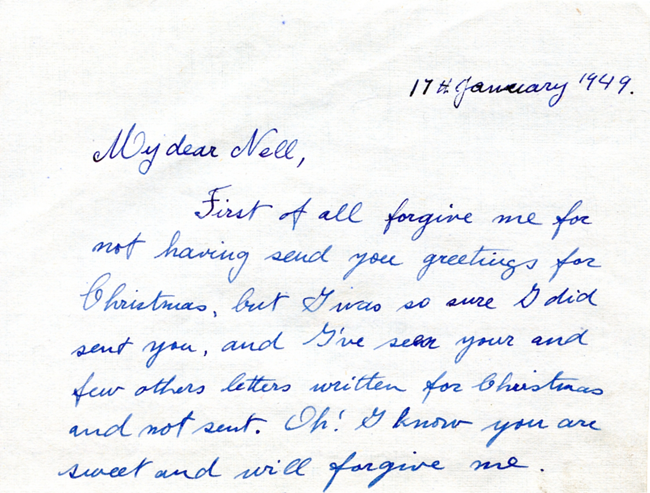 17th January 1949.
My dear Nell,
First of all forgive me for
not having send you greetings for
Christmas, but I was so sure I did
sent you, and I've seen your and
few others letters written for Christmas
and not sent. Oh! I know you are
sweet and will forgive me.